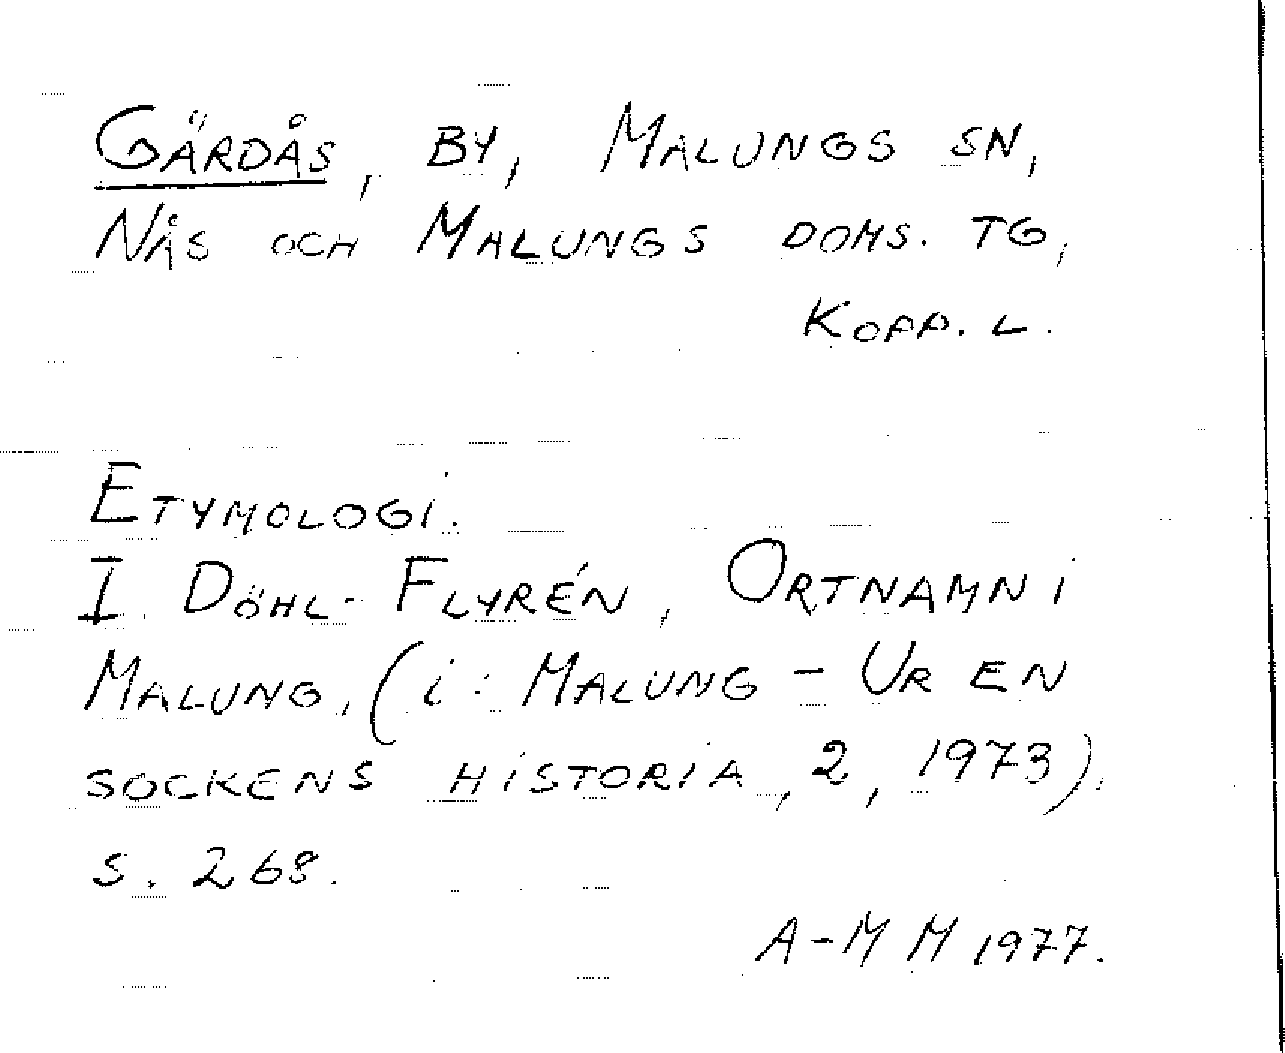 GÄRDÅS, BY, MALUNGS SN,
NÅS OCH MALUNGS DOMS. TG,
KOPP. L.
ETYMOLOGI.
I. DÖHL-FLYRÉN, ORTNAMN I
MALUNG, (i: MALUNG - UR EN
SOCKENS HISTORIA, 2, 1973).
S. 268.
A-M M 1977.